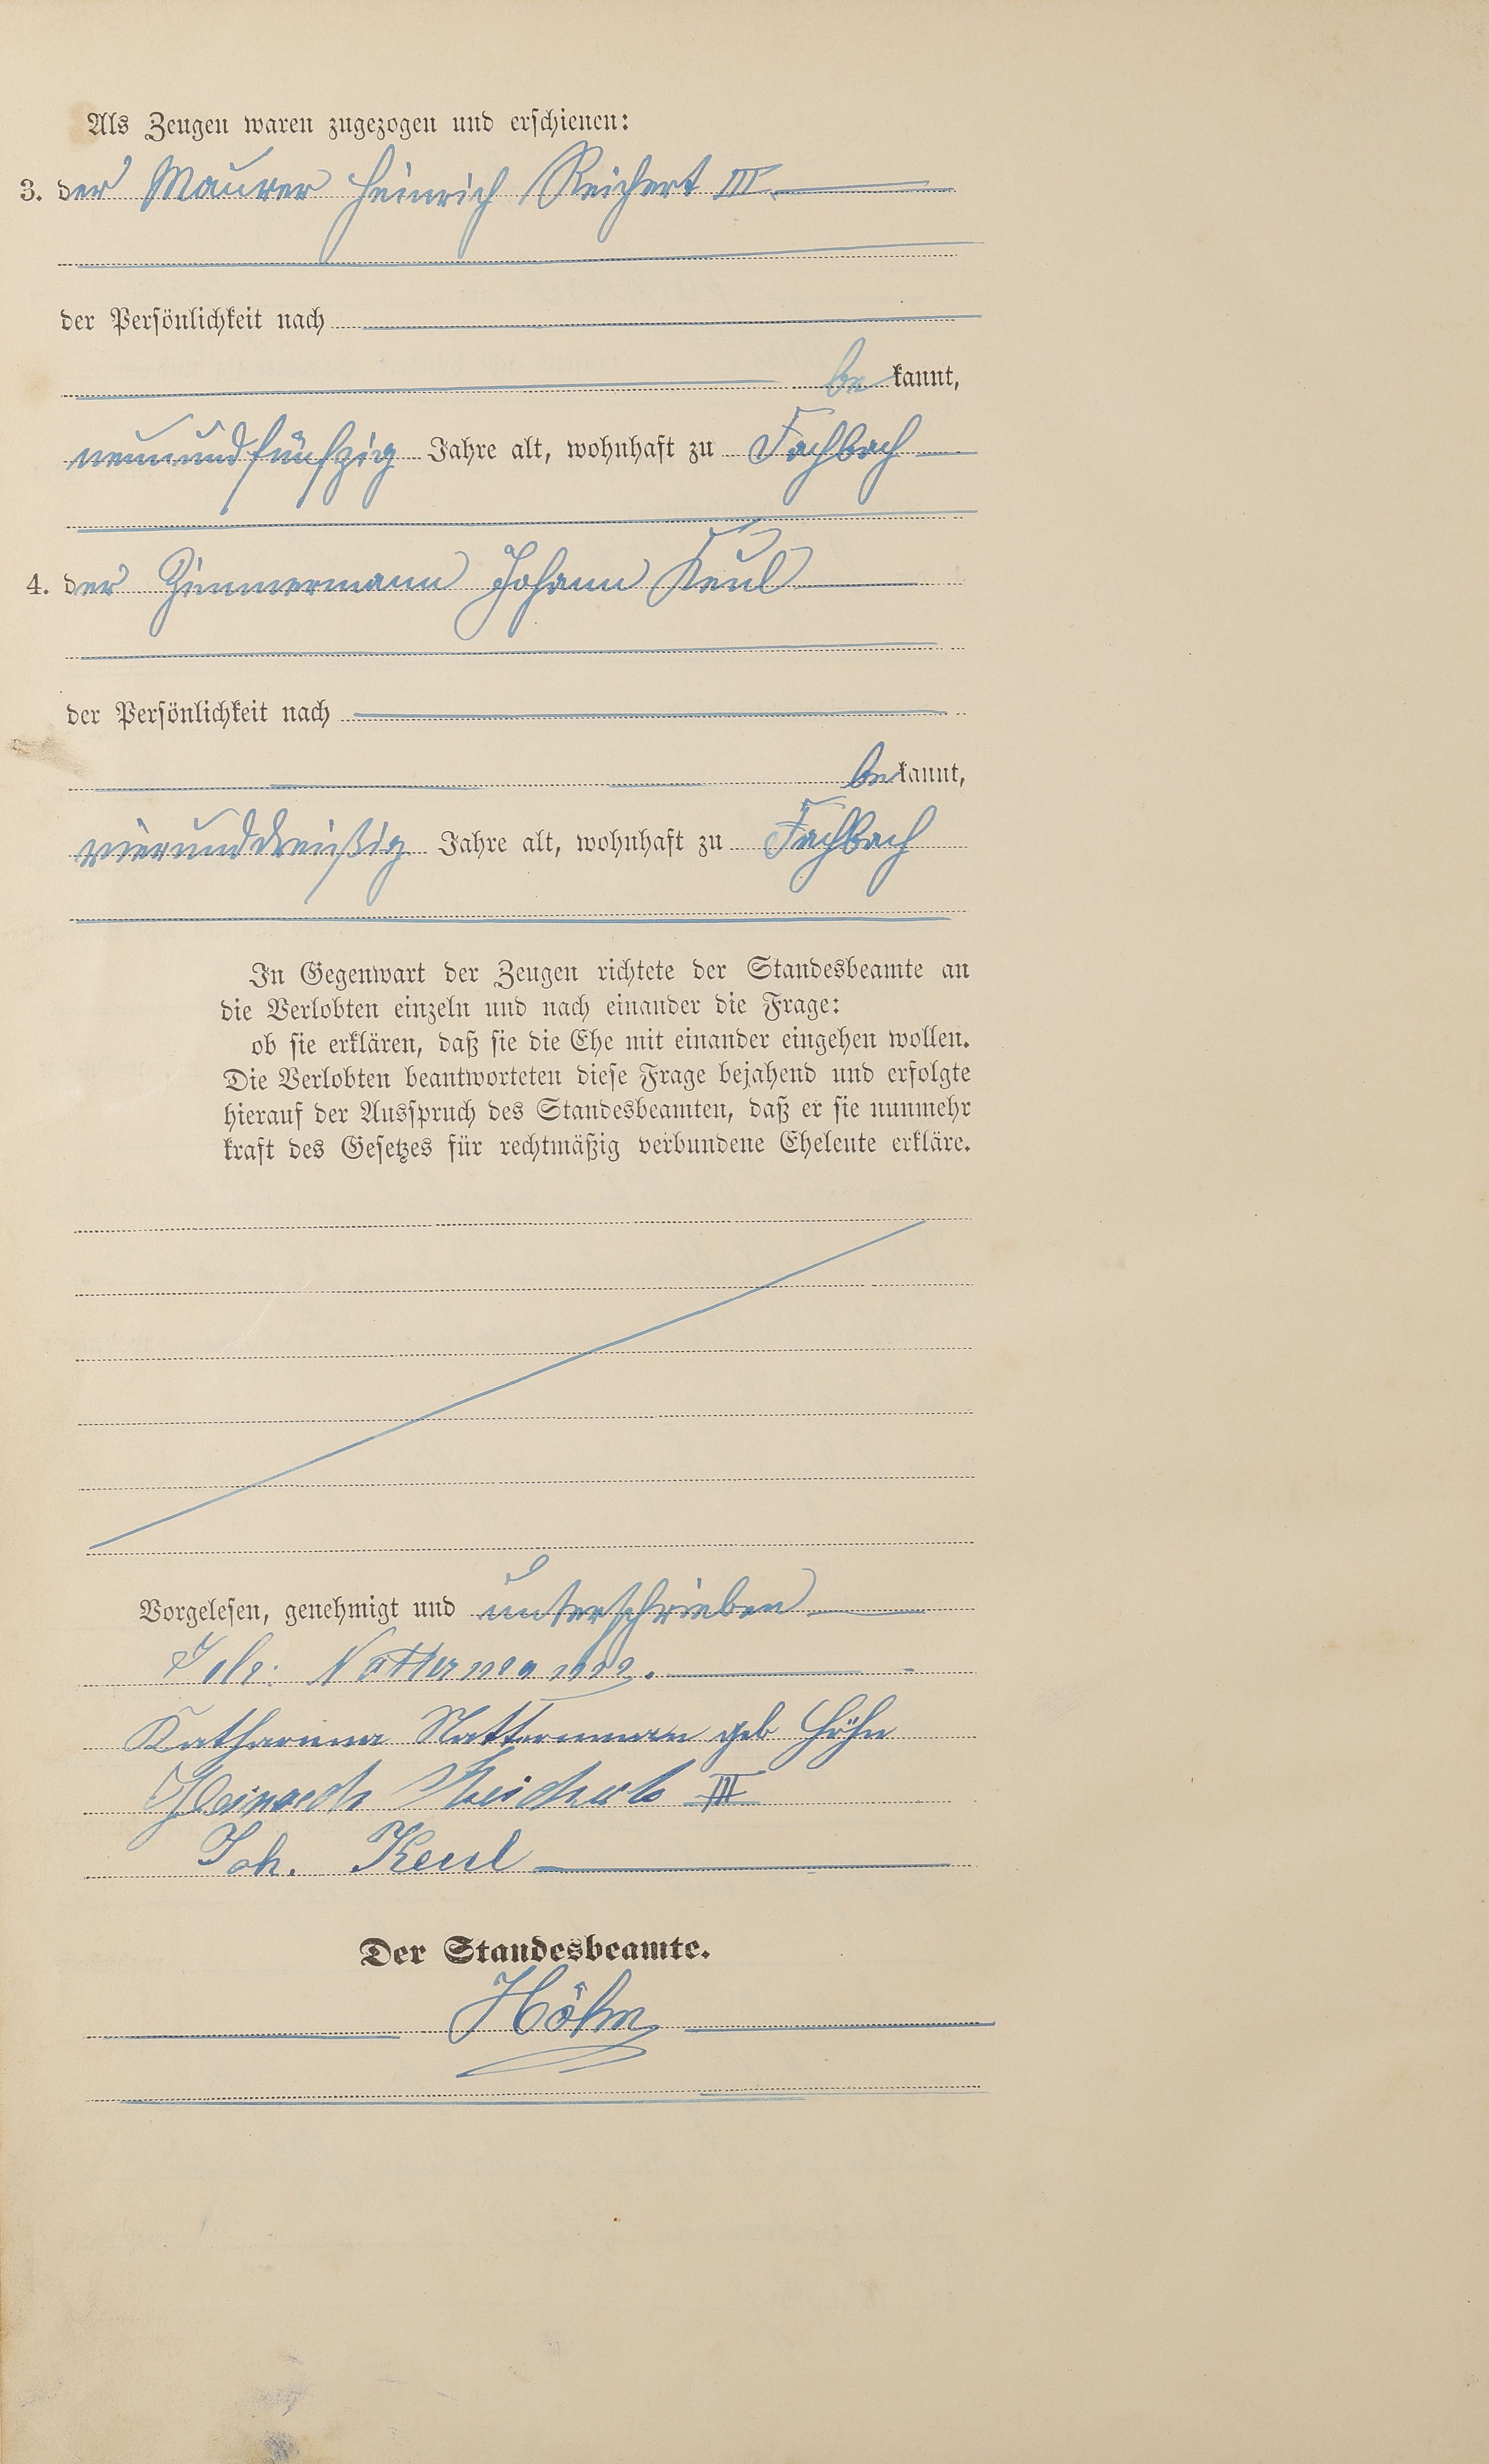 Als Zeugen waren zugezogen und erschienen:
3. der Maurer Heinrich Reichert III.
der Persönlichkeit nach
be kannt,
neunundfünfzig Jahre alt, wohnhaft zu Fachbach
4. der Zimmermann Johann Keul
der Persönlichkeit nach
be kannt,
vierunddreißig Jahre alt, wohnhaft zu Fachbach
In Gegenwart der Zeugen richtete der Standesbeamte an
die Verlobten einzeln und nach einander die Frage:
ob sie erklären, daß sie die Ehe mit einander eingehen wollen.
Die Verlobten beantworteten diese Frage bejahend und erfolgte
hierauf der Ausspruch des Standesbeamten, daß er sie nunmehr
kraft des Gesetzes für rechtmäßig verbundene Eheleute erkläre.
Vorgelesen, genehmigt und unterschrieben
Joh: Nattermann.
Katharina Nattermann geb Höhn
Heinrich Reichert III
Joh. Keul
Der Standesbeamte.
Höhn